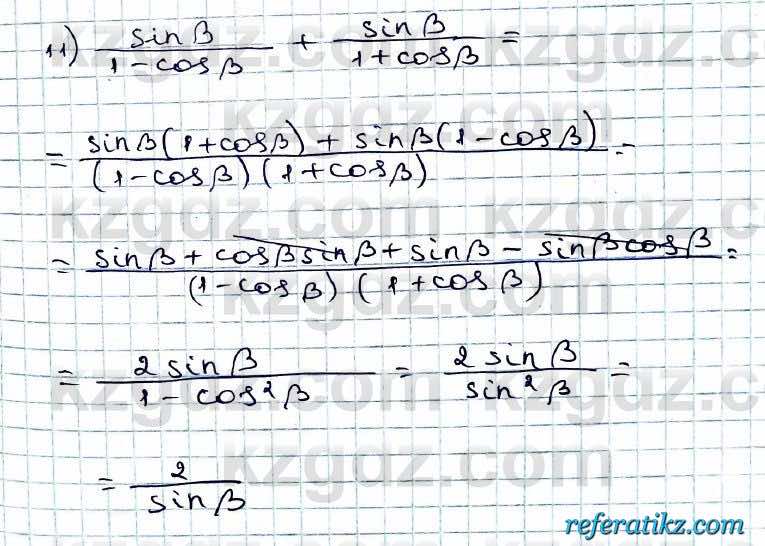 11) sinβ/(1-cosβ) + sinβ/(1+cosβ) =
= (sinβ(1+cosβ) + sinβ(1-cosβ))/((1-cosβ)(1+cosβ)) =
= (sinβ + cosβ sinβ + sinβ - sinβ cosβ)/((1-cosβ)(1+cosβ)) =
= 2 sinβ/(1-cos²β) = 2 sinβ/sin²β =
= 2/sinβ
kzgdz.com
referatikz.com